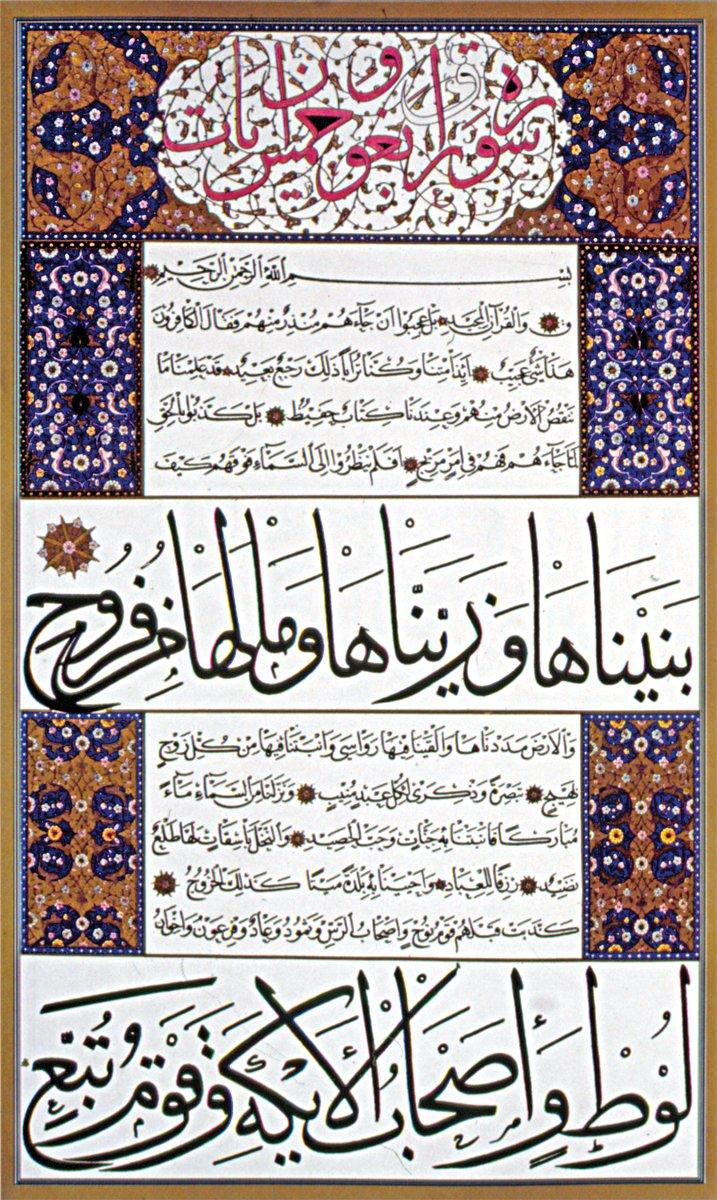 سوره ق اربعون و خمس ايات
بسم الله الرحمن الرحيم
ق والقرآن المجيد بل عجبوا ان جاءهم منذر منهم فقال الكافرون
هذا شئ عجيب أئذا متنا وكنا ترابا ذلك رجع بعيد قد علمنا ما
تنقص الارض منهم وعندنا كتاب حفيظ بل كذبوا بالحق
لما جاءهم فهم في امر مريج افلم ينظروا الى السماء فوقهم كيف
بنيناها وزيناها وما لها من فروج
والارض مددناها والقينا فيها رواسي وانبتنا فيها من كل زوج
بهيج تبصرة وذكرى لكل عبد منيب ونزلنا من السماء ماء
مباركا فانبتنا به جنات وحب الحصيد والنخل باسقات لها طلع
نضيد رزقا للعباد واحيينا به بلدة ميتا كذلك الخروج
كذبت قبلهم قوم نوح واصحاب الرس وثمود وعاد وفرعون واخوان
لوط وأصحاب الأيكة وقوم تبع